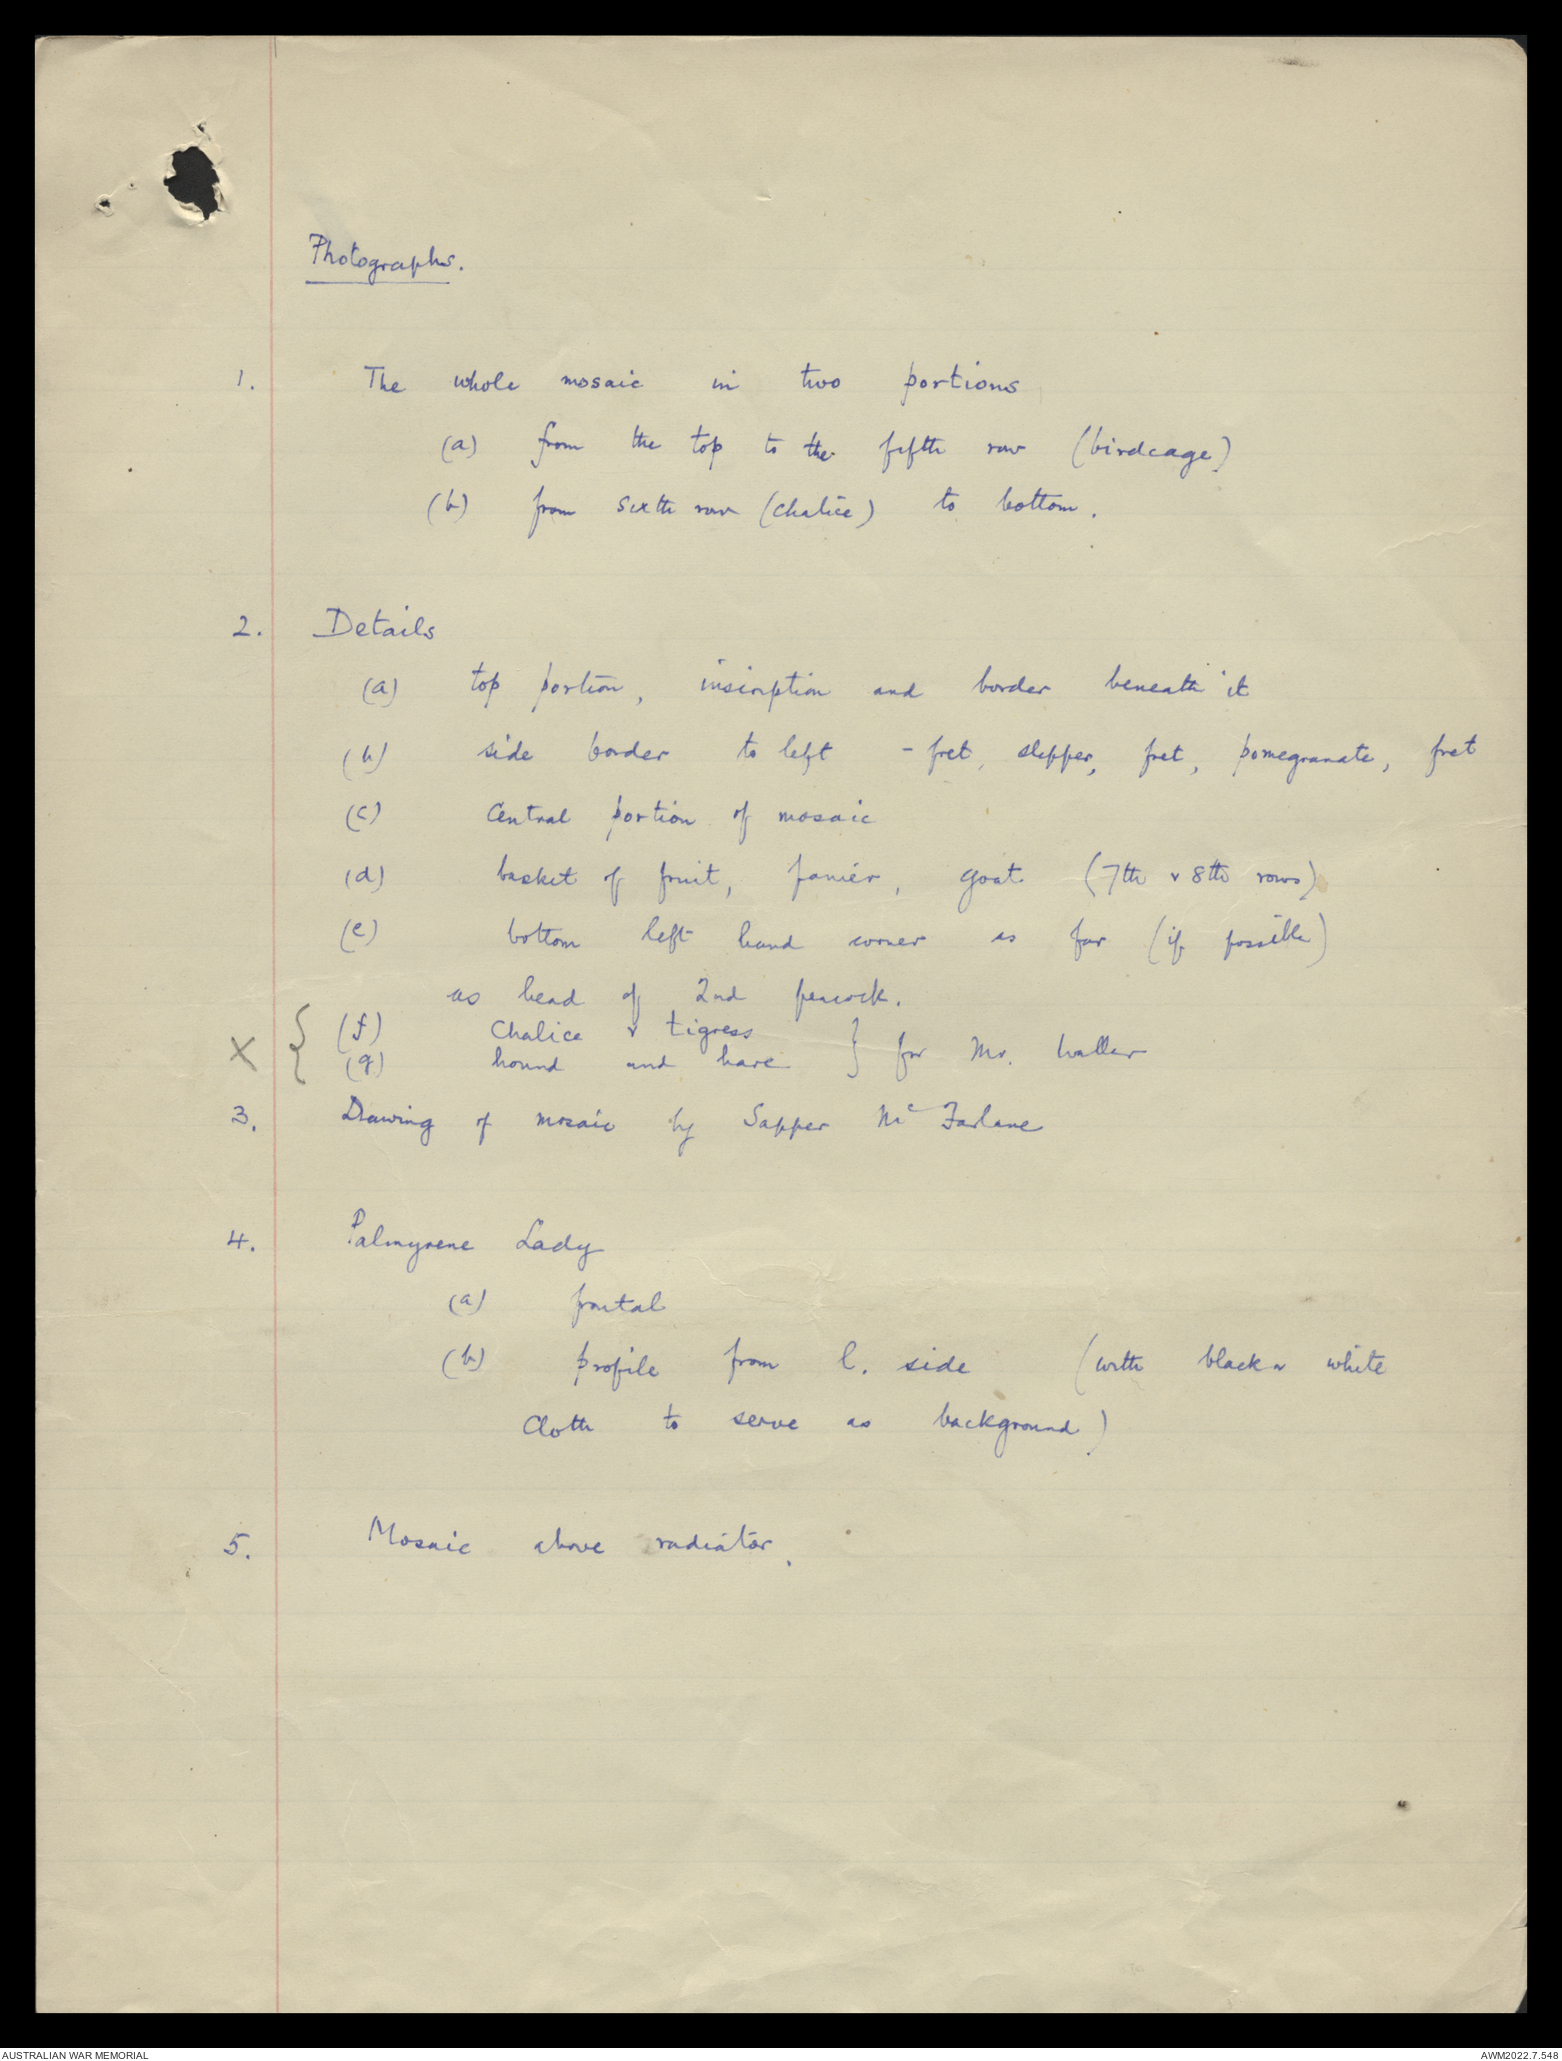 Photographs.
1. The whole mosaic in two portions
(a) from the top to the fifth row (birdcage)
(b) from sixth row (chalice) to bottom.
2. Details
(a) top portion, inscription and border beneath it
(b) side border to left - fret, slipper, fret, pomegranate, fret
(c) Central portion of mosaic
(d) basket of fruit, panier, goat (7th & 8th rows)
(e) bottom left hand corner as far (if possible)
as head of 2nd peacock.
X { (f) Chalice & tigress } for Mr. Waller
(g) hound and hare
3. Drawing of mosaic by Sapper McFarlane
4. Palmyrene Lady
(a) frontal
(b) profile from l. side (with black or white
cloth to serve as background)
5. Mosaic above radiator.
AUSTRALIAN WAR MEMORIAL
AWM2022.7.548